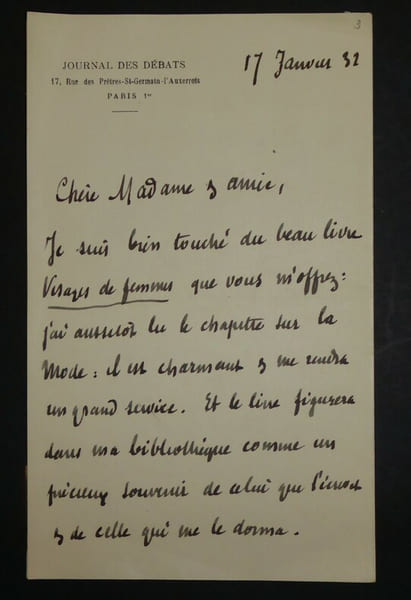 3
JOURNAL DES DÉBATS
17, Rue des Prêtres-St-Germain-l'Auxerrois
PARIS 1er
17 Janvier 32
Chère Madame & amie,
Je suis bien touché du beau livre
Visages de femmes que vous m'offrez :
j'ai aussitôt lu le chapitre sur la
Mode : il est charmant & me rendra
un grand service. Et le livre figurera
dans ma bibliothèque comme un
précieux souvenir de celui que l'écrivit
& de celle qui me le donna.